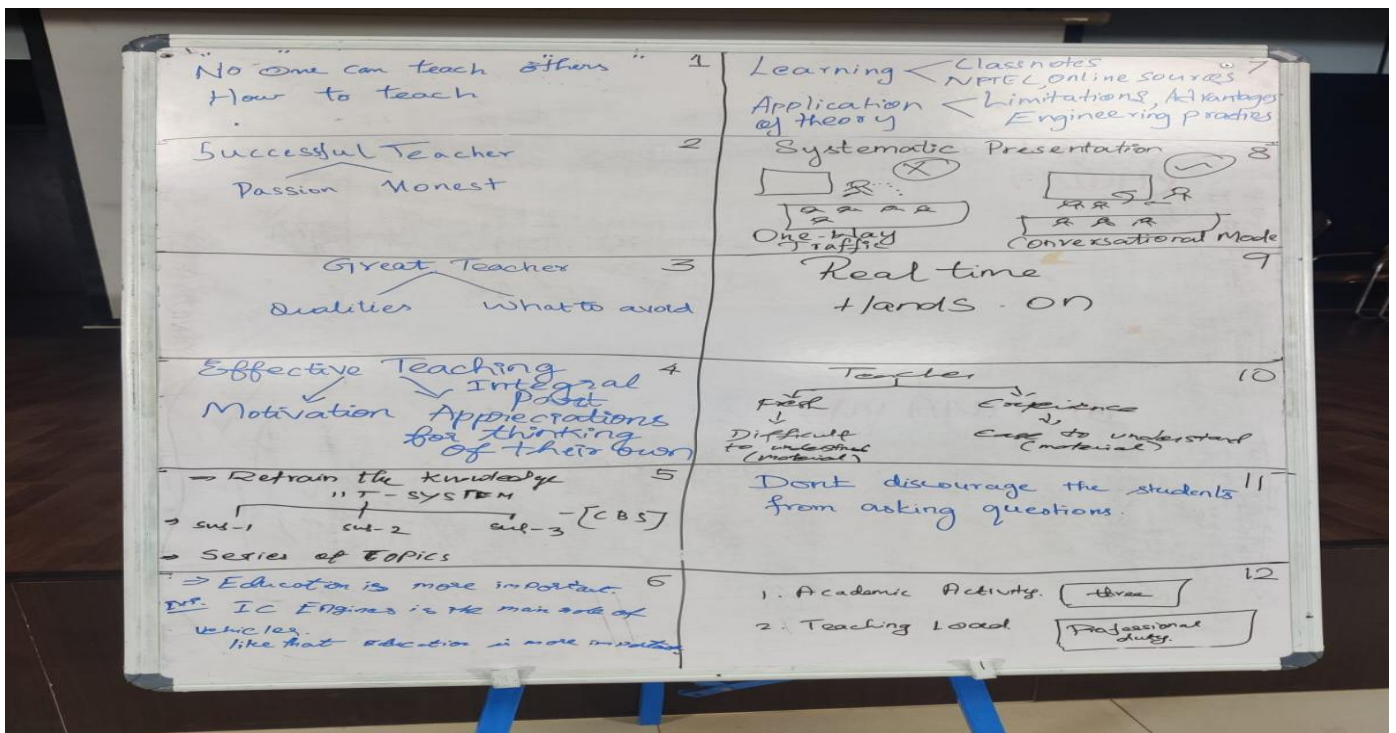 No one can teach others 1
How to teach
Successful Teacher 2
Passion Honest
Great Teacher 3
Qualities What to avoid
Effective Teaching 4
Motivation
Integral
Part
Appreciations
for thinking
of their own
→ Retrain the knowledge 5
IIT-SYSTEM
→ sub-1 sub-2 sub-3 - [CBS]
→ Series of Topics
⇒ Education is more important. 6
IC Engines is the main role of
vehicles.
like that education is more important
Learning 7
Classnotes
NPTEL, online sources
Application
of theory
Limitations, Advantages
Engineering practies
Systematic Presentation 8
One-Way
Traffic
Conversational Mode
Real time 9
Hands-on
Teacher 10
Fresh Experience
Difficult
to understand
(material)
Ease to understand
(material)
Dont discourage the students 11
from asking questions.
12
1. Academic Activity. three
2. Teaching Load Professional
duty.